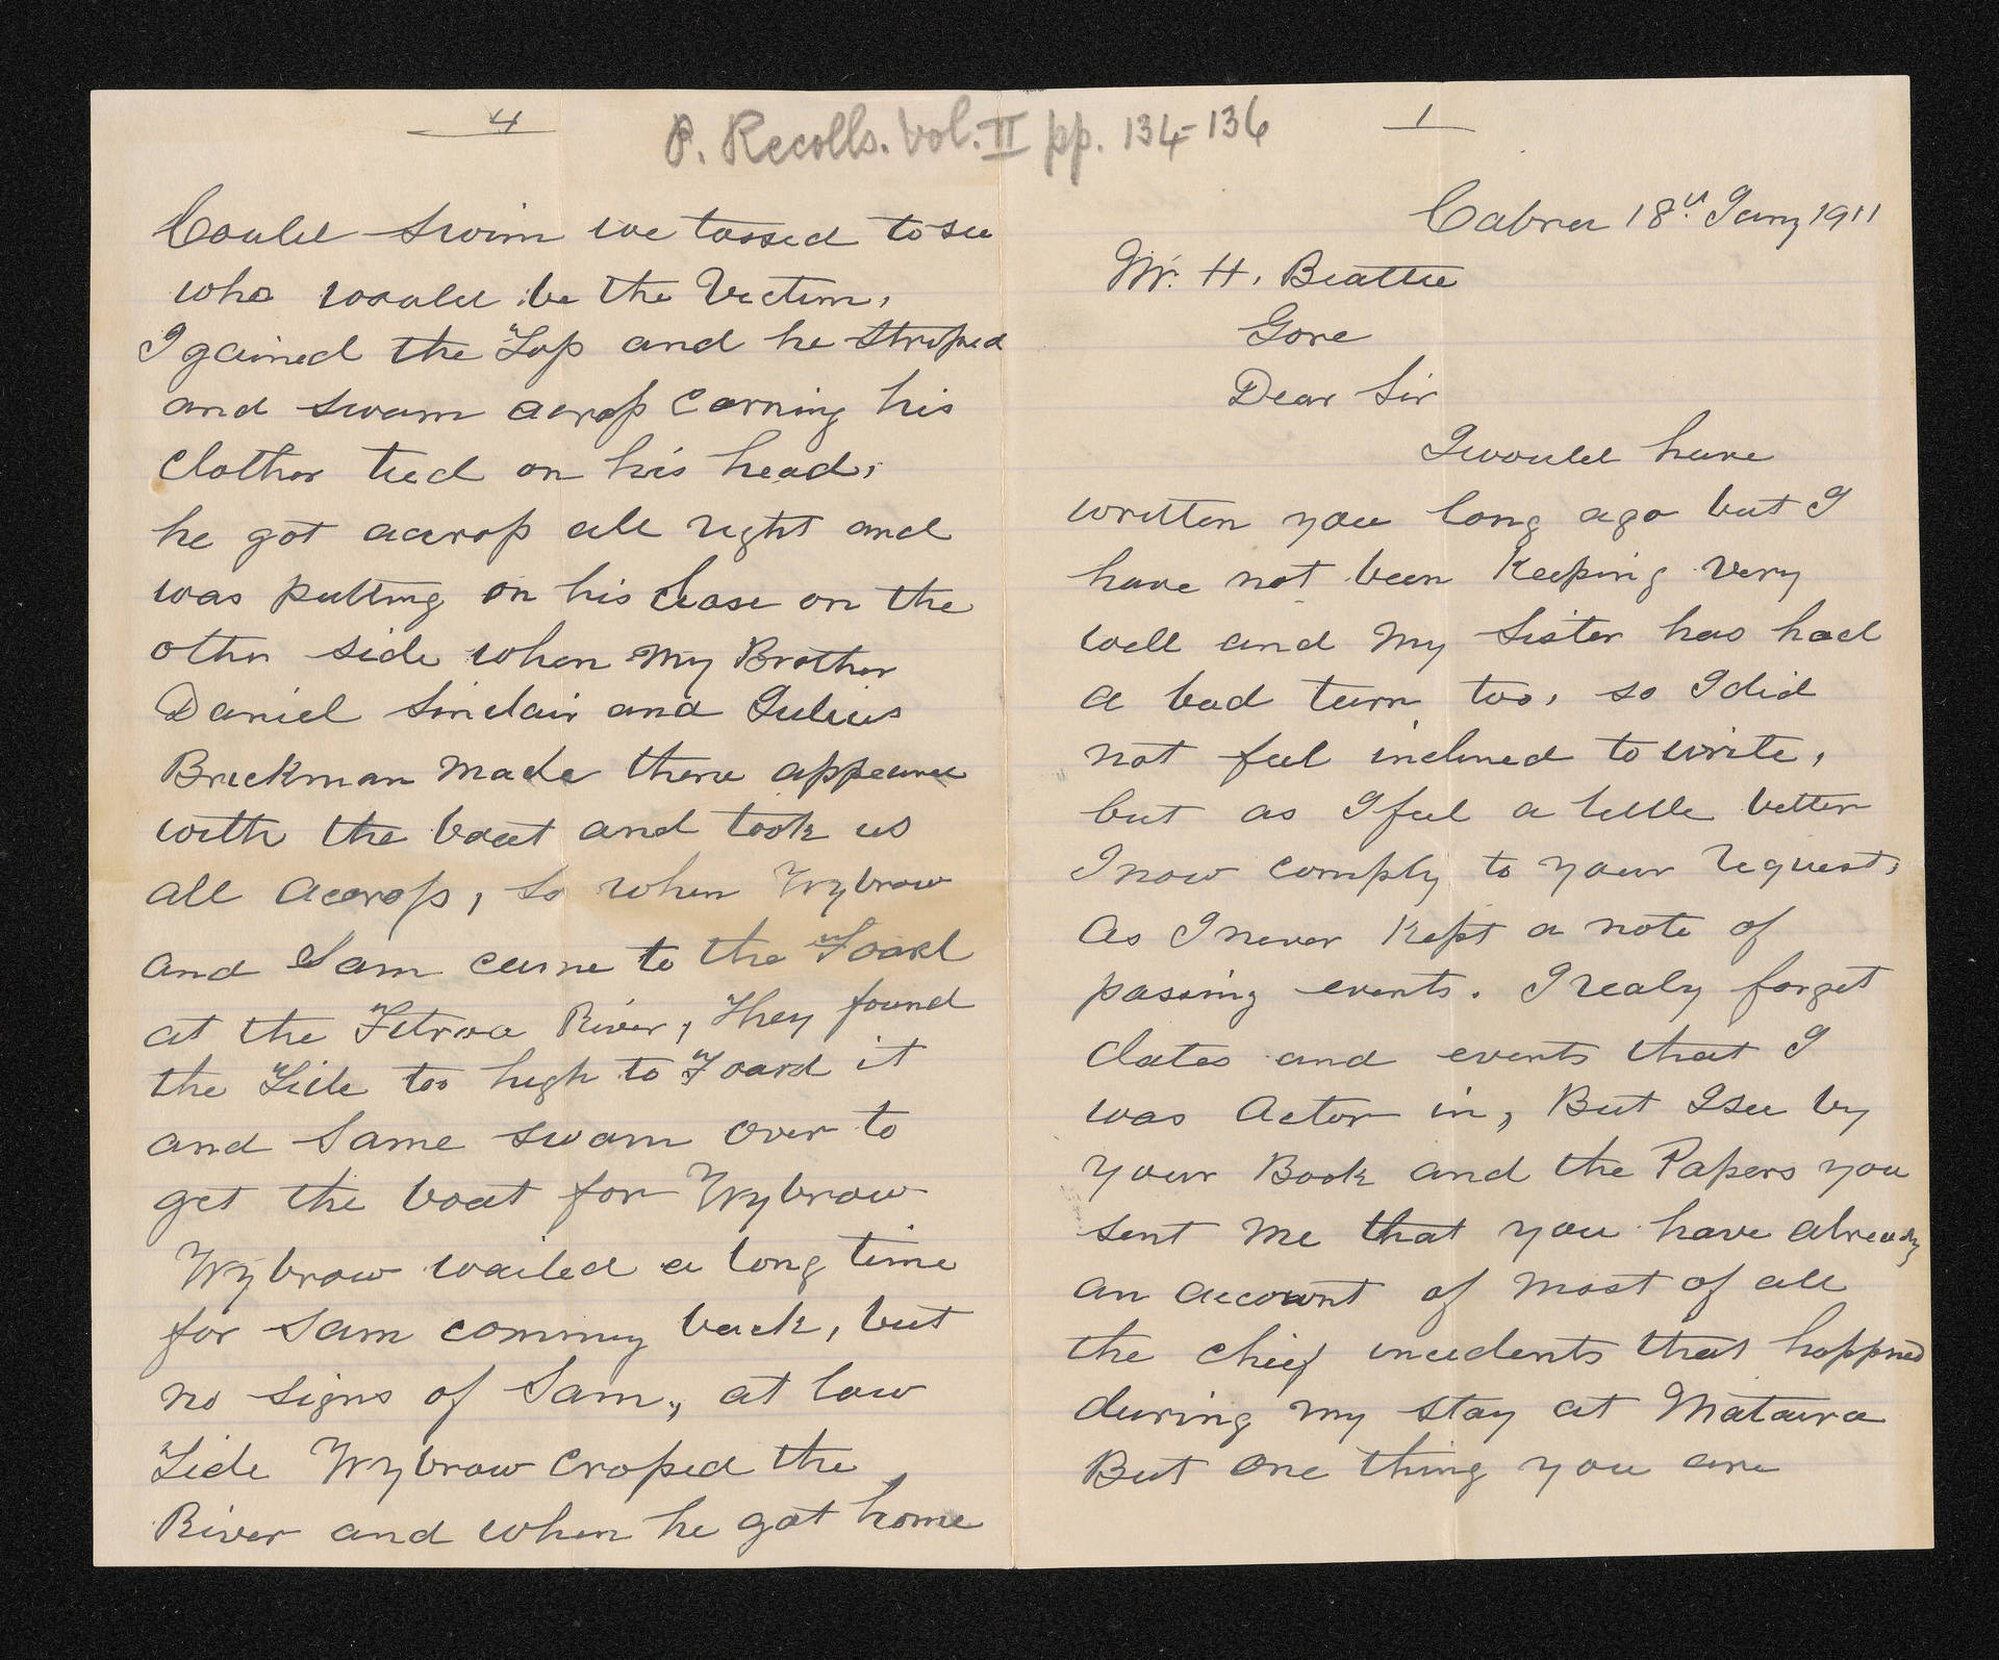 P. Recolls. Vol. II pp. 134-136
4
Could swim we tossed to see
who would be the Victim.
I gained the Top and he striped
and swam across carning his
clothes tied on his head,
he got accross all right and
was putting on his Clase on the
other side when my Brother
Daniel Sinclair and Julius
Brickman made there appearnce
with the boat and took us
all accross, so when Wybrow
and Sam came to the Foard
at the Titroa River, they found
the Tide too high to Foard it
and Same swam over to
get the boat for Wybrow
Wybrow waited a long time
for Sam comming back, but
no signs of Sam, at low
Tide Wybrow crosed the
River and when he got home
1
Cabrea 18th Jany 1911
Mr. H. Beattie
Gore
Dear Sir
I would have
written you long ago but I
have not been Keeping very
well and my Sister has had
a bad turn too, so I did
not feel inclined to write,
but as I feel a little better
I now comply to your request,
As I never Kept a note of
passing events. I realy forget
dates and events that I
was Actor in, But I see by
your Book and the Papers you
sent me that you have already
an account of most of all
the chief incidents that happned
during my stay at Mataura
But one thing you are